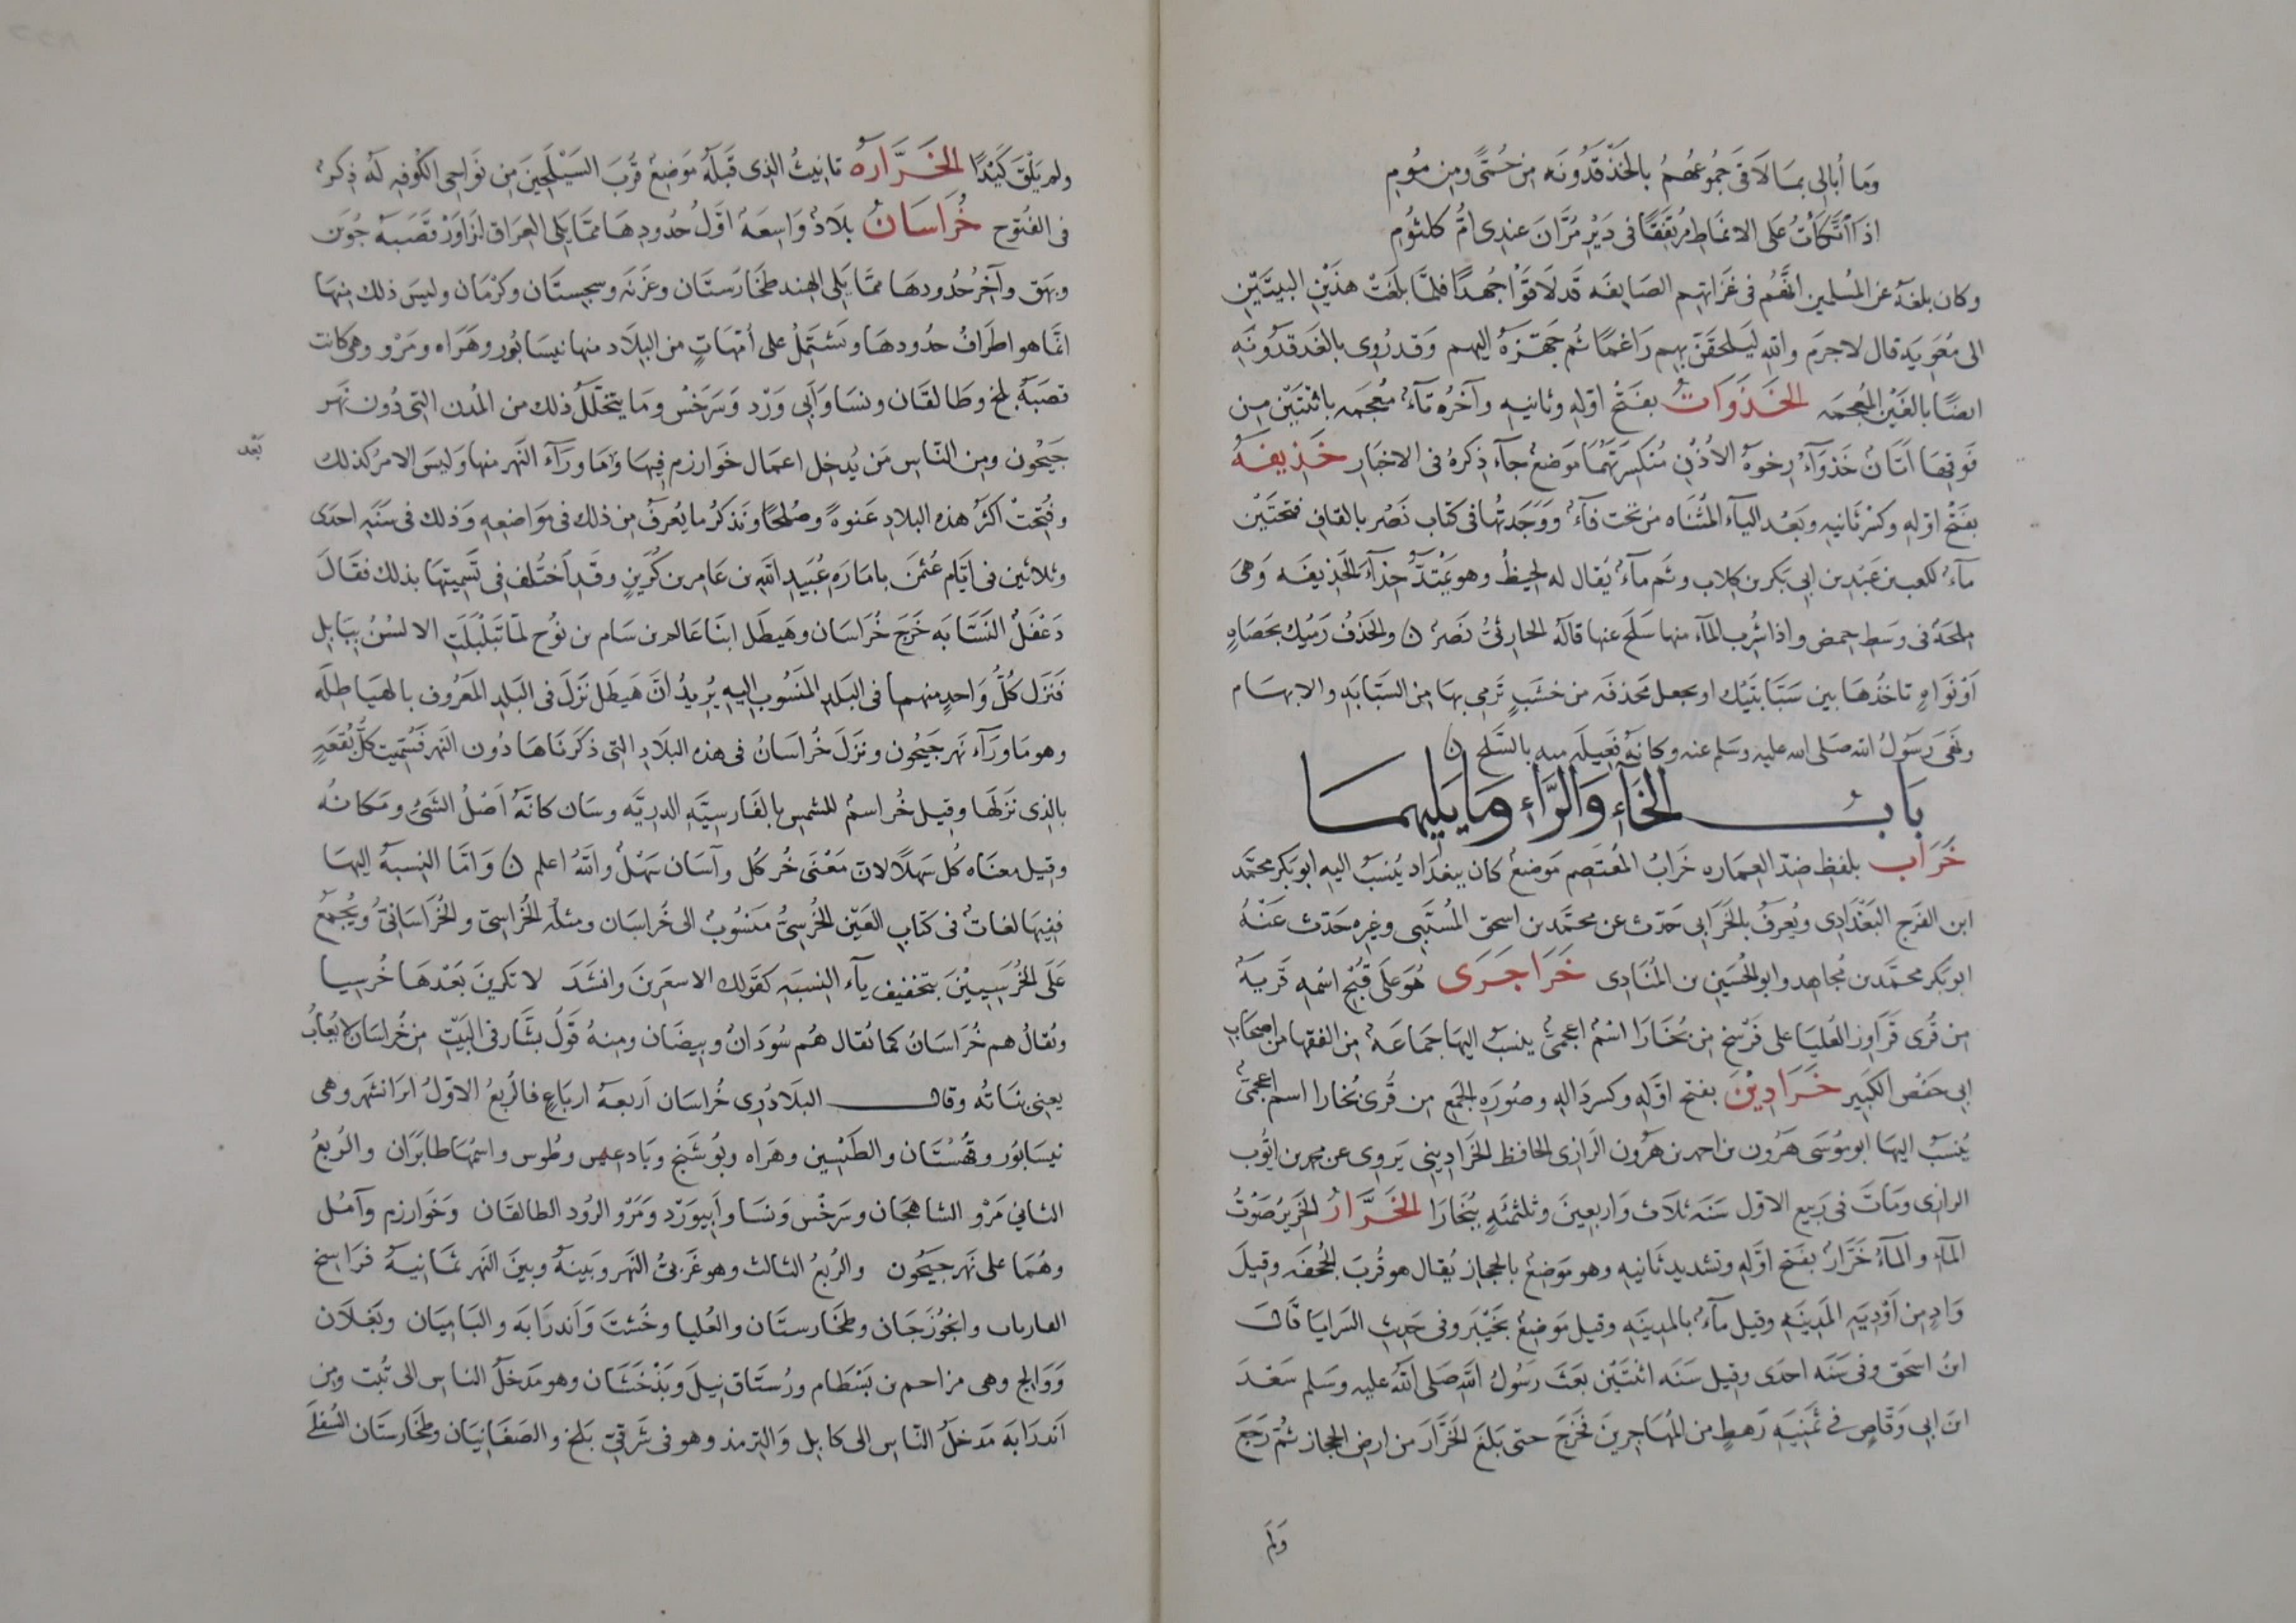 وَمَا أُبَالِى بمَا لَاقَى جَمُوعُهُمُ بالخَذْقَدُونَه مِن حُمَّى ومِن مُومِ
اذَا اتَّكَأتُ عَلى الانمَاطِ مُرتَفِقًا فى دَيْرِ مُرَّانَ عندِى امُّ كلثُومِ
وكان بلغهُ عن المُسلمين انهُم فى غزاتهِم الصَايفَه قَد لَاقَوْا جُهدًا فلمَّا بلغَتْ هذَيْنِ البيتَيْنِ
الى مُعَويَه قال لا جرمَ والله ليَلحقَنَّ بهِم رَاغمًا ثُم جهّزَهُ اليهم وَقد رُوِى بالغَذقدُونَهِ
ايضًا بالغَيْنِ المُعجمَه الخَذَوَاتُ بفتحُ اولِهِ وثانيهِ وآخرُه تآءٌ مُعجمه باثنَتَيْن مِن
فوقِهَا اتَانٌ خذوَآءُ رِخوهُ الأُذُنِ مُنكسِرَتهُمَا مَوضعٌ جآء ذِكرهُ فى الاخبَارِ خَذِيفَهُ
بفَتْحِ اولهِ وكسْرِ ثَانيهِ وبَعْد اليآء المُثَنَاه من تحت فآءٌ ووَجَدتُها فى كتاب نَصْر بالقافِ فتحتَيْن
مآءٌ لكعب بن عَبْد بن ابى بَكر بن كِلاب وثَم مآءٌ يُقال له لحِيظٌ وهو ثمَدٌ حِذآءَ الخَذيفَه وَهىَ
مِلحَهٌ فى وسَطِ حِمض واذا شُرِب المآء منها سَلَح عنها قالهُ الحارثىُّ نَصْرٌ ن والخَذفُ رَميُك بحَصَاهٍ
أوْ نَوَاهٍ تاخُذُهَا بين سَبَّابتَيْك او تجعل مَحذفَه من خشَبٍ تَرمِى بها مِن السَبّابَه والابهَام
ونَهَى رَسُولُ الله صَلى الله عليه وَسَلم عنه وكانَهُ فَعِيلَه منه بالسَّلح ن
بَابُ الخَآءِ وَالرَّاءِ وَمَا يَلِيهمَا
خَرَاب بلفظِ ضدّ العِمَاره خَرَابُ المُعْتَصِم مَوضعٌ كان ببغدَاد يُنسَبُ اليه ابو بَكر محمَّد
ابن الفَرَج البَغْدَادِى ويُعرفُ بالخَرَابى حَدّث عن محمَّد بن اسحق المُسَيَّبى وغيره حَدّث عَنْهُ
ابو بَكر محمَّد بن مُجاهِد وابو الحُسَين بن المُنَادِى خَرَاجَرَى هُوَ عَلى قُبْحِ اسْمِهِ قَريةٌ
مِن قُرى فَرَاوز العُليَا على فَرْسَخ مِن بُخَارَا اسْمٌ اعجمىٌّ ينسبُ اليهَا جمَاعَهٌ مِن الفقها من اصحَابِ
ابى حَفْص الكبِير خَرَادِيْنَ بفتح اوّلِهِ وكسر دَالِهِ وصُورَه الجَمع مِن قُرى بُخارا اسم اعجمىٌّ
يُنسَبُ اليهَا ابو مُوسَى هَرُون بن احمد بن هَرُون الرَازِى الحافظ الخَرَادِينى يَروِى عن محمد بن ايُّوب
الرازى ومَاتَ فى رَبِيع الاوّل سَنَه ثلَاث وَاربعِينَ وثلثمئهِ ببُخَارَا الخَرَّارُ الخَرِيرُ صَوْتُ
المآءِ والمآءُ خَرَّارٌ بفَتح اوّلِهِ وتشديد ثَانيهِ وهو مَوْضِعٌ بالحِجازِ يُقال هو قُربَ الجُحفَه وقِيلَ
وَادٍ مِن أوْدِيَهِ المَدِينَهِ وقيل مآءٌ بالمدِينَهِ وقيل مَوْضِعٌ بخَيْبَر وفى حَدِيثِ السَرايَا قَالَ
ابنُ اسحَق وفى سَنَه احدى وقيل سَنَه اثنتَيْن بعَثَ رَسُولُ اللهِ صَلى اللهُ عليه وسَلم سَعْدَ
ابنَ ابى وَقَّاص فى ثمَنيَهِ رَهطٍ من المُهَاجرِينَ فخَرجَ حتى بَلغَ الخَرَّارَ من ارضِ الحجاز ثُمَّ رَجَعَ
وَلَم
ولم يَلْقَ كَيْدًا الخَرَّارَهُ تانيثُ الذِى قَبلَهُ مَوضِعٌ قُربَ السَيْلَحِينَ مِن نَوَاحِى الكُوفهِ لهُ ذِكرٌ
فى الفُتوحِ خُرَاسَانُ بلَادٌ وَاسِعَهٌ اوّلُ حُدُودِهَا ممّا يَلى العِرَاق ازَاوَزْ قَصَبهُ جُوَين
وبَيهَق وآخِرُ حُدُودهَا ممّا يَلى الهِند طخَارَستَان وغَزنَه وسِجِستَان وكَرْمَان وليسَ ذلك مِنهَا
انّمَا هو اطرَافُ حدُودهَا وتَشتَمِلُ على أُمَّهَاتٍ من البِلَاد منها نَيسَابُور وهَرَاه ومَرْو وهى كانت
قصَبَهَ بَلخ وطَالقَان ونسَا وَابِى وَرْد وَسَرَخْس وَمَا يتخلّلُ ذلك من المُدن التى دُون نهَر
جَيْحُون ومِن النّاسِ مَن يُدخِل اعمَال خَوَارزم فِيهَا وَمَا ورَآء النَهر منها وَليسَ الامرُ كذلك
بَعْد
وفُتِحَتْ اكثرُ هذه البلادِ عَنوهً وصُلحًا ونَذكُرُ ما يُعرفُ مِن ذلك فى مَوَاضِعِهِ وَذلك فى سَنَهِ احدَى
وثلاثين فى ايّام عُثمٰنَ بامَارَهِ عُبَيدِ اللهِ بن عَامِر بن كُرَيزٍ وقَد اختُلِف فى تَسمِيتهَا بذلك فقَالَ
دَغْفَلُ النَسّابَه خَرجَ خُرَاسَان وهَيطَل ابنَا عَالم بن سَام بن نُوح لمّا تبَلْبَلَتِ الالسُنُ ببَابِل
فَنَزل كُلُّ وَاحدٍ منهمَا فى البَلدِ المَنسُوبِ اليهِ يُرِيدُ انَّ هَيطَل نَزَلَ فى البَلدِ المعَرُوف بالهيَاطِلَه
وهو مَا ورَآء نَهر جَيحُون ونزَلَ خُرَاسَانُ فى هذه البلَادِ التى ذكَرنَاهَا دُون النَهر فسُمّيت كلُّ بُقعَهٍ
بالذِى نزَلهَا وقيل خُر اسمٌ للشمسِ بالفَارسِيَّهِ الدرِيَّه وسَان كانّهُ أصْلُ الشئِ ومَكانُه
وقيل معنَاه كُل سَهلًا لان مَعْنَى خُر كُل وآسَان سَهْلٌ واللهُ اعلم ن وَامّا النِسبهُ اليهَا
ففِيهَا لغاتٌ فى كتابِ العَيْنِ الخُرسِىُّ مَنسُوبٌ الى خُراسَان ومثلُه الخُرَاسِىّ والخُرَاسَانىُّ ويُجمَعُ
عَلَى الخُرَسِيِيْنَ بتخفيف يآء النِسبَهِ كقَولك الاشعَرينَ وانشَدَ لا تكرِينَ بَعْدهَا خُرسِيا
ويُقالُ هم خُرَاسَانُ كما يُقال هُم سُودَانٌ وبِيضَان ومِنهُ قَولُ بشّار فى البَيْتِ مِن خُرَاسَان لا يُعَابُ
يعنى بنَاتُه وقال البلَاذُرِى خُرَاسَان أربعهُ اربَاعٍ فالرُبعُ الاوّلُ ايرَانشهر وهى
نَيسَابُور وقُهُسْتَان والطَبَسِين وهَرَاه وبُوشَنج وبَادغيس وطُوس واسمُهَا طابَرَان والرُبعُ
الثانى مَرْو الشاهجَان وسَرخْس ونَسَا وأبِيوَرْد ومَرْو الرُود الطالقَان وخَوَارزم وآمُل
وهُمَا على نَهر جَيحُون والرُبعُ الثالث وهو غَربىُّ النَهر وبَينَهُ وبينَ النَهر ثمَانيهُ فرَاسخ
الفارياب والجُوزجَان وطخَارستَان والعُليا وخَستَ وَاندرَابَه والبَامِيَان وبَغلَان
وَوَالج وهى مزاحم بن بسْطَام ورُستَاق نِيلَ وبَذْخَشَان وهو مَدخلُ الناسِ الى تُبّت ومِن
أندرَابَه مَدخلُ النّاسِ الى كابِل والترمذ وهو فى شَرقىِّ بلخ والصَغانيَان وطخَارستَان السُفلَى